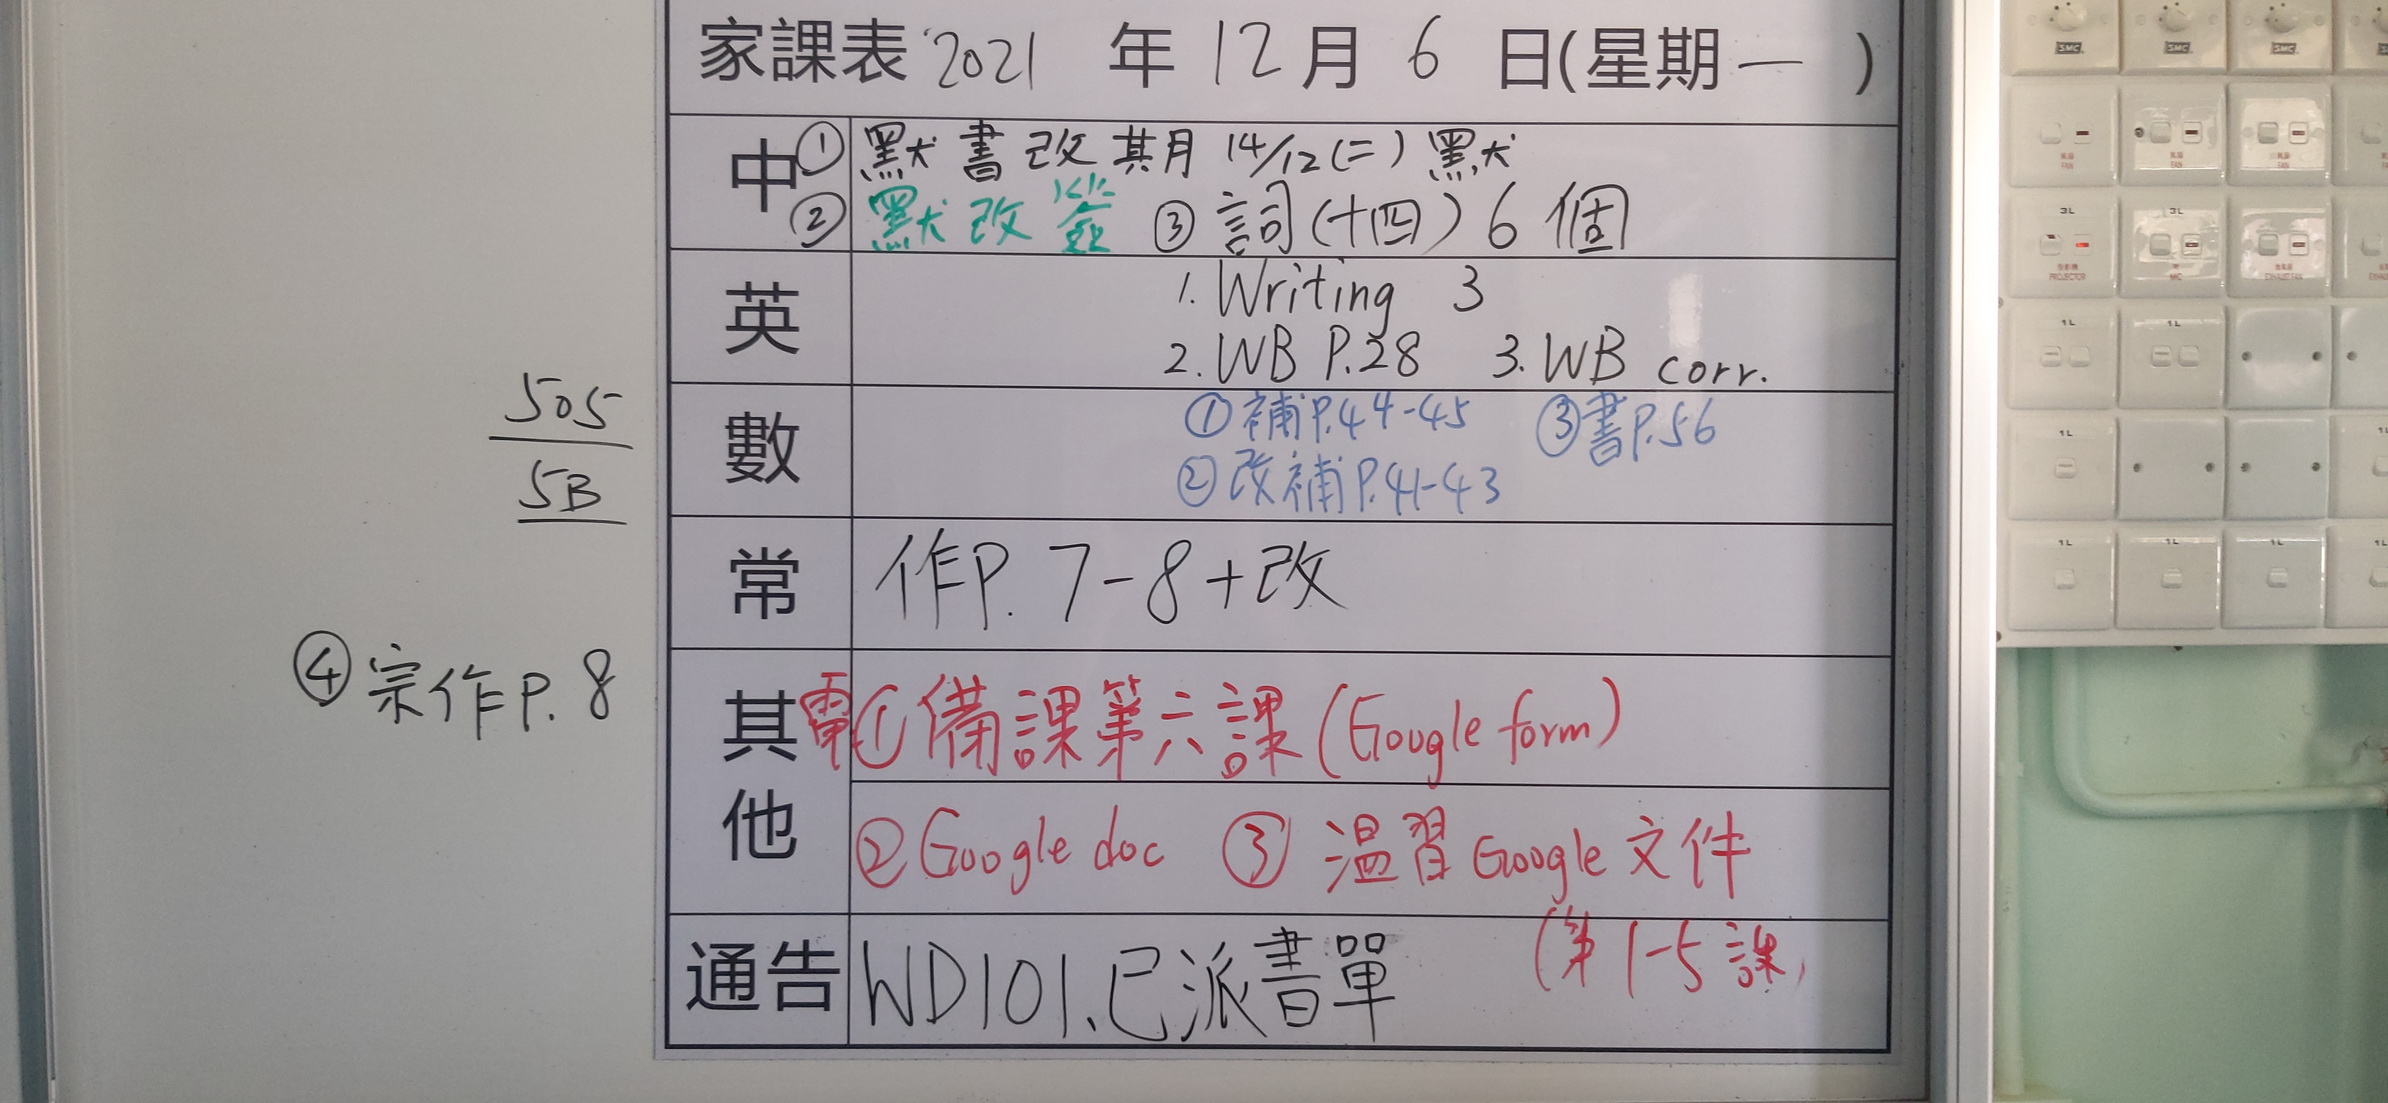 家課表 2021 年 12 月 6 日(星期一)
中 ① 默書改其月 14/12(二)默
② 默改簽 ③ 詞(十四)6個
英 1. Writing 3
2. WB P.28 3. WB corr.
數 ①補P.44-45 ③書P.56
②改補P.41-43
505
5B
常 作P. 7-8+改
④宗作P. 8
其他 電①備課第六課(Google form)
②Google doc ③ 溫習Google文件
(第1-5課)
通告 WD101.已派書單
SMC
SMC
SMC
FAN
FAN
FAN
3L
3L
PROJECTOR
MIC
EXHAUST FAN
1L
1L
1L
1L
1L
1L